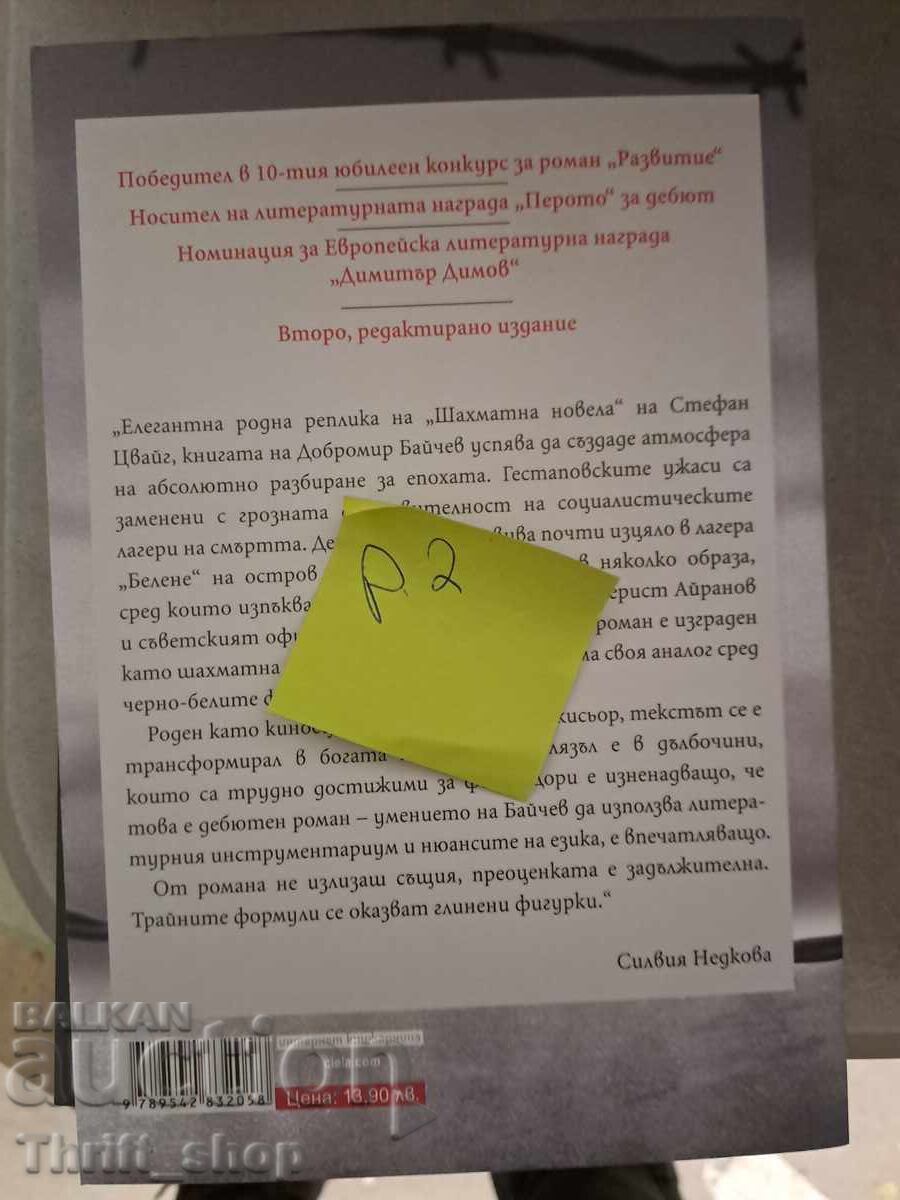 Победител в 10-тия юбилеен конкурс за роман „Развитие“
Носител на литературната награда „Перото“ за дебют
Номинация за Европейска литературна награда
„Димитър Димов“
Второ, редактирано издание
„Елегантна родна реплика на „Шахматна новела“ на Стефан
Цвайг, книгата на Добромир Байчев успява да създаде атмосфера
на абсолютно разбиране за епохата. Гестаповските ужаси са
заменени с грозната на социалистическите
лагери на смъртта. почти изцяло в лагера
„Белене“ на остров в няколко образа,
сред които Айранов
и съветският роман е изграден
като шахматна своя аналог сред
черно-белите
Роден като текстът се е
трансформирал в богата е в дълбочини,
които са трудно достижими за дори е изненадващо, че
това е дебютен роман – умението на Байчев да използва литера-
турния инструментариум и нюансите на езика, е впечатляващо.
От романа не излизаш същия, преоценката е задължителна.
Трайните формули се оказват глинени фигурки.“
Силвия Недкова
р. 2
интернет книжарница
ciela.com
Цена: 13.90 лв.
9 789542 832058
BALKAN
auction
Thrift_shop